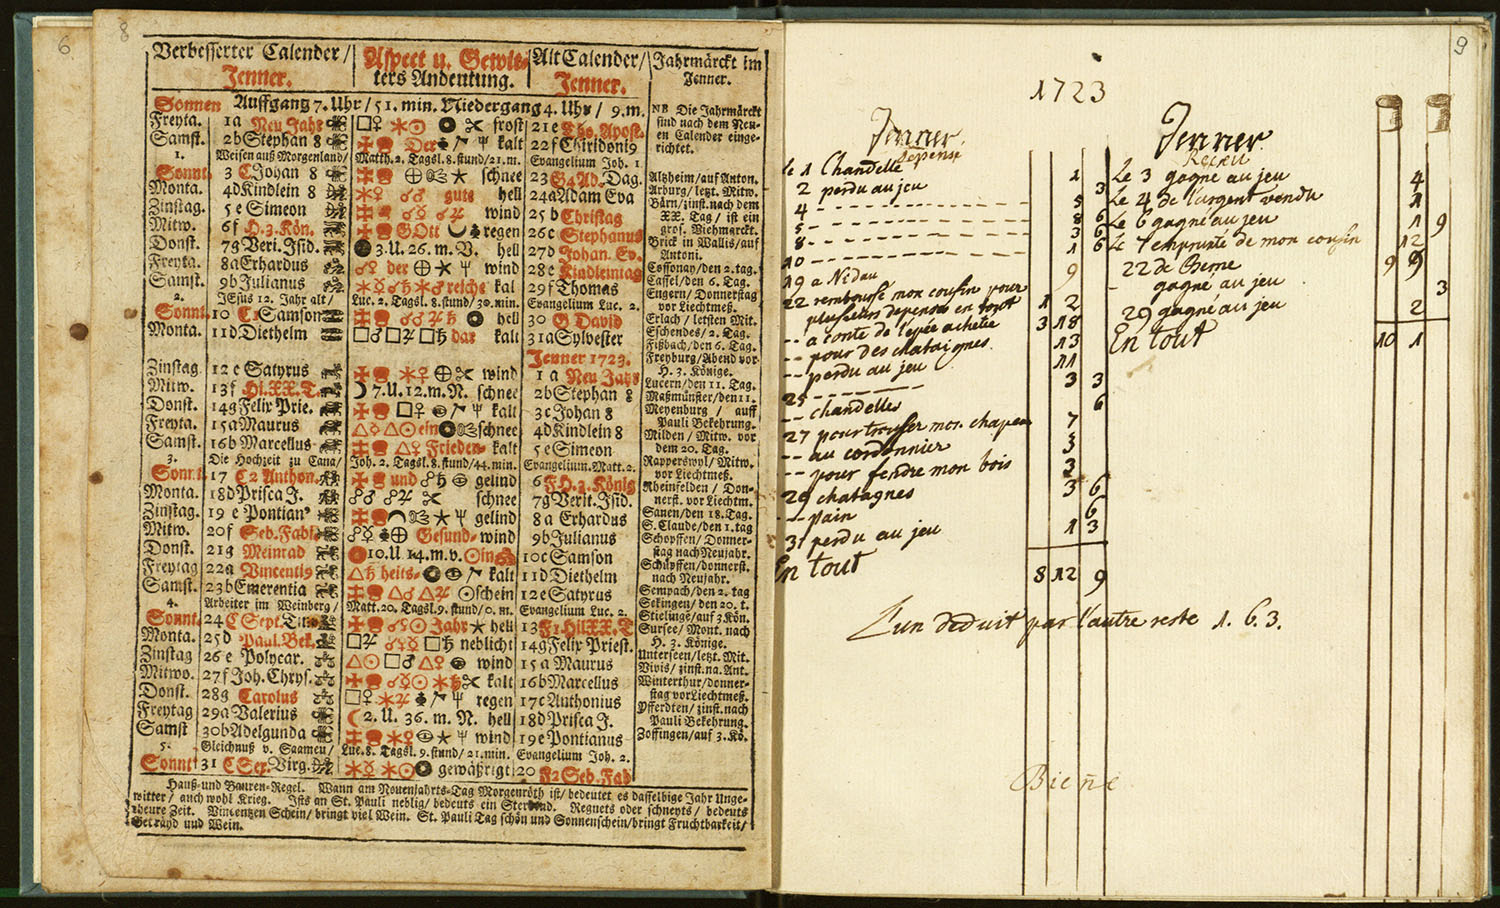 6
8
Verbesserter Calender/ | Aspect u. Gewit- | Alt Calender/ | Jahrmärckt im
Jenner. | ters Andeutung. | Jenner. | Jenner.
Sonnen Auffgang 7. Uhr/ 51. min. Niedergang 4. Uhr/ 9. m.
Freyta. 1 a Neu Jahr frost 21 e Tho. Apost.
Samst. 2 b Stephan 8 Der kalt 22 f Chiridonig
1. Weisen auß Morgenland/ Matth. 2. Tagsl. 8. stund/ 21. m. Evangelium Joh. 1.
Sonnt. 3 C Johan 8 schnee 23 G 4 Ad. Dag.
Monta. 4 d Kindlein 8 gute hell 24 a Adam Eva
Zinstag. 5 e Simeon wind 25 b Christag
Mitw. 6 f H. 3. Kön. GOtt regen 26 c Stephanus
Donst. 7 g Veri. Isid. 3. U. 26. m. V. hell 27 d Johan. Ev.
Freyta. 8 a Erhardus der wind 28 e Kindleintag
Samst. 9 b Julianus reiche kal 29 f Thomas
2. JEsus 12. Jahr alt/ Luc. 2. Tagsl. 8. stund/ 30. min. Evangelium Luc. 2.
Sonnt. 10 C 1 Samson hell 30 G David
Monta. 11 d Diethelm das kalt 31 a Sylvester
Jenner 1723.
Zinstag 12 e Satyrus wind 1 a Neu Jahr
Mitw. 13 f Hl. XX. T. 7. U. 12. m. N. schnee 2 b Stephan 8
Donst. 14 g Felix Prie. kalt 3 c Johan 8
Freyta. 15 a Maurus ein schnee 4 d Kindlein 8
Samst. 16 b Marcellus Frieden- kalt 5 e Simeon
3. Die Hochzeit zu Cana/ Joh. 2. Tagsl. 8. stund/ 44. min. Evangelium. Matt. 2.
Sonnt. 17 C 2 Anthon. und gelind 6 F H. 3. König
Monta. 18 d Prisca J. schnee 7 g Verit. Isid.
Zinstag. 19 e Pontian⁹ gelind 8 a Erhardus
Mitw. 20 f Seb. Fabi. Gesund- wind 9 b Julianus
Donst. 21 g Meinrad 10. U. 14. m. v. in 10 c Samson
Freytag 22 a Vincentig heits- kalt 11 d Diethelm
Samst. 23 b Emerentia schein 12 e Satyrus
4. Arbeiter im Weinberg/ Matt. 20. Tagsl. 9. stund/ 0. m. Evangelium Luc. 2.
Sonnt. 24 C Sept. Tim Jahr hell 13 F 1 Hil XX. T
Monta. 25 d Paul. Bek. neblicht 14 g Felix Priest.
Zinstag 26 e Polycar. wind 15 a Maurus
Mitwo. 27 f Joh. Chrys. kalt 16 b Marcellus
Donst. 28 g Carolus regen 17 c Anthonius
Freytag 29 a Valerius 2. U. 36. m. N. hell 18 d Prisca J.
Samst 30 b Adelgunda wind 19 e Pontianus
5. Gleichnuß v. Saamen/ Luc. 8. Tagsl. 9. stund/ 21. min. Evangelium Joh. 2.
Sonnt 31 C Sex. Virg. gewäßrigt 20 F 2 Seb. Fab
NB Die Jahrmärckt
sind nach dem Neu-
en Calender einge-
richtet.
Altzheim/ auf Anton.
Arburg/ letzt. Mitw.
Bärn/ zinst. nach dem
XX. Tag/ ist ein
gros. Viehmarckt.
Brick in Wallis/ auf
Antoni.
Coffonay/ den 2. tag.
Cassel/ den 6. Tag.
Engern/ Donnerstag
vor Liechtmeß.
Erlach/ letsten Mit.
Eschendes/ 2. Tag.
Fißbach/ den 6. Tag.
Freyburg/ Abend vor
H. 3. Könige.
Lucern/ den 11. Tag.
Maßmünster/ den 11.
Meyenburg/ auff
Pauli Bekehrung.
Milden/ Mitw. vor
dem 20. Tag.
Rapperswyl/ Mitw.
vor Liechtmeß.
Rheinfelden/ Don-
nerst. vor Liechtm.
Sanen/ den 18. Tag.
S. Claude/ den 1. tag
Schopffen/ Donner-
stag nach Neujahr.
Schüpffen/ donnerst.
nach Neujahr.
Sempach/ den 2. tag
Sekingen/ den 20. t.
Stielinge/ auf 3. Kön.
Sursee/ Mont. nach
H. 3. Könige.
Unterseen/ letzt. Mit.
Vivis/ zinst. na. Ant.
Winterthur/ donner-
stag vor Liechtmeß.
Pfferdten/ zinst. nach
Pauli Bekehrung.
Zoffingen/ auf 3. Kö.
Hauß- und Bauren-Regel. Wann am Neuenjahrs-Tag Morgenröth ist/ bedeutet es dasselbige Jahr Unge-
witter/ auch wohl Krieg. Ists an St. Pauli neblig/ bedeuts ein Sterbend. Regnets oder schneyts/ bedeuts
theure Zeit. Vincentzen Schein/ bringt viel Wein. St. Pauli Tag schön und Sonnenschein/ bringt Fruchtbarkeit/
Getrayd und Wein.
9
1723
Jenner
Depense
le 1 Chandelle 1
2 perdu au jeu 3
4 - - - 5
5 - - - 8 6
8 - - - 3 6
10 - - - 1 6
19 a Nidau 9
22 remboursé mon cousin pour
plusieurs depenses en tout 1 2
-- a conte de l'epée achetée 3 18
-- pour des chataignes 13
-- perdu au jeu 11
25 - - - 3 3
-- chandelles 6
27 pour trousser mon chapeau 7
-- au cordonnier 3
-- pour fendre mon bois 3
29 chatagnes 3 6
-- pain 6
31 perdu au jeu 1 3
En tout 8 12 9
Jenner
Receu
Le 3 gagné au jeu 4
Le 4 de l'argent vendu 1
Le 6 gagné au jeu 1 9
Le 7 emprunté de mon cousin 12
22 de Berne 9 9
gagné au jeu 3
29 gagné au jeu 2
En tout 10 1
L'un deduit par l'autre reste 1. 6. 3.
Bieñe